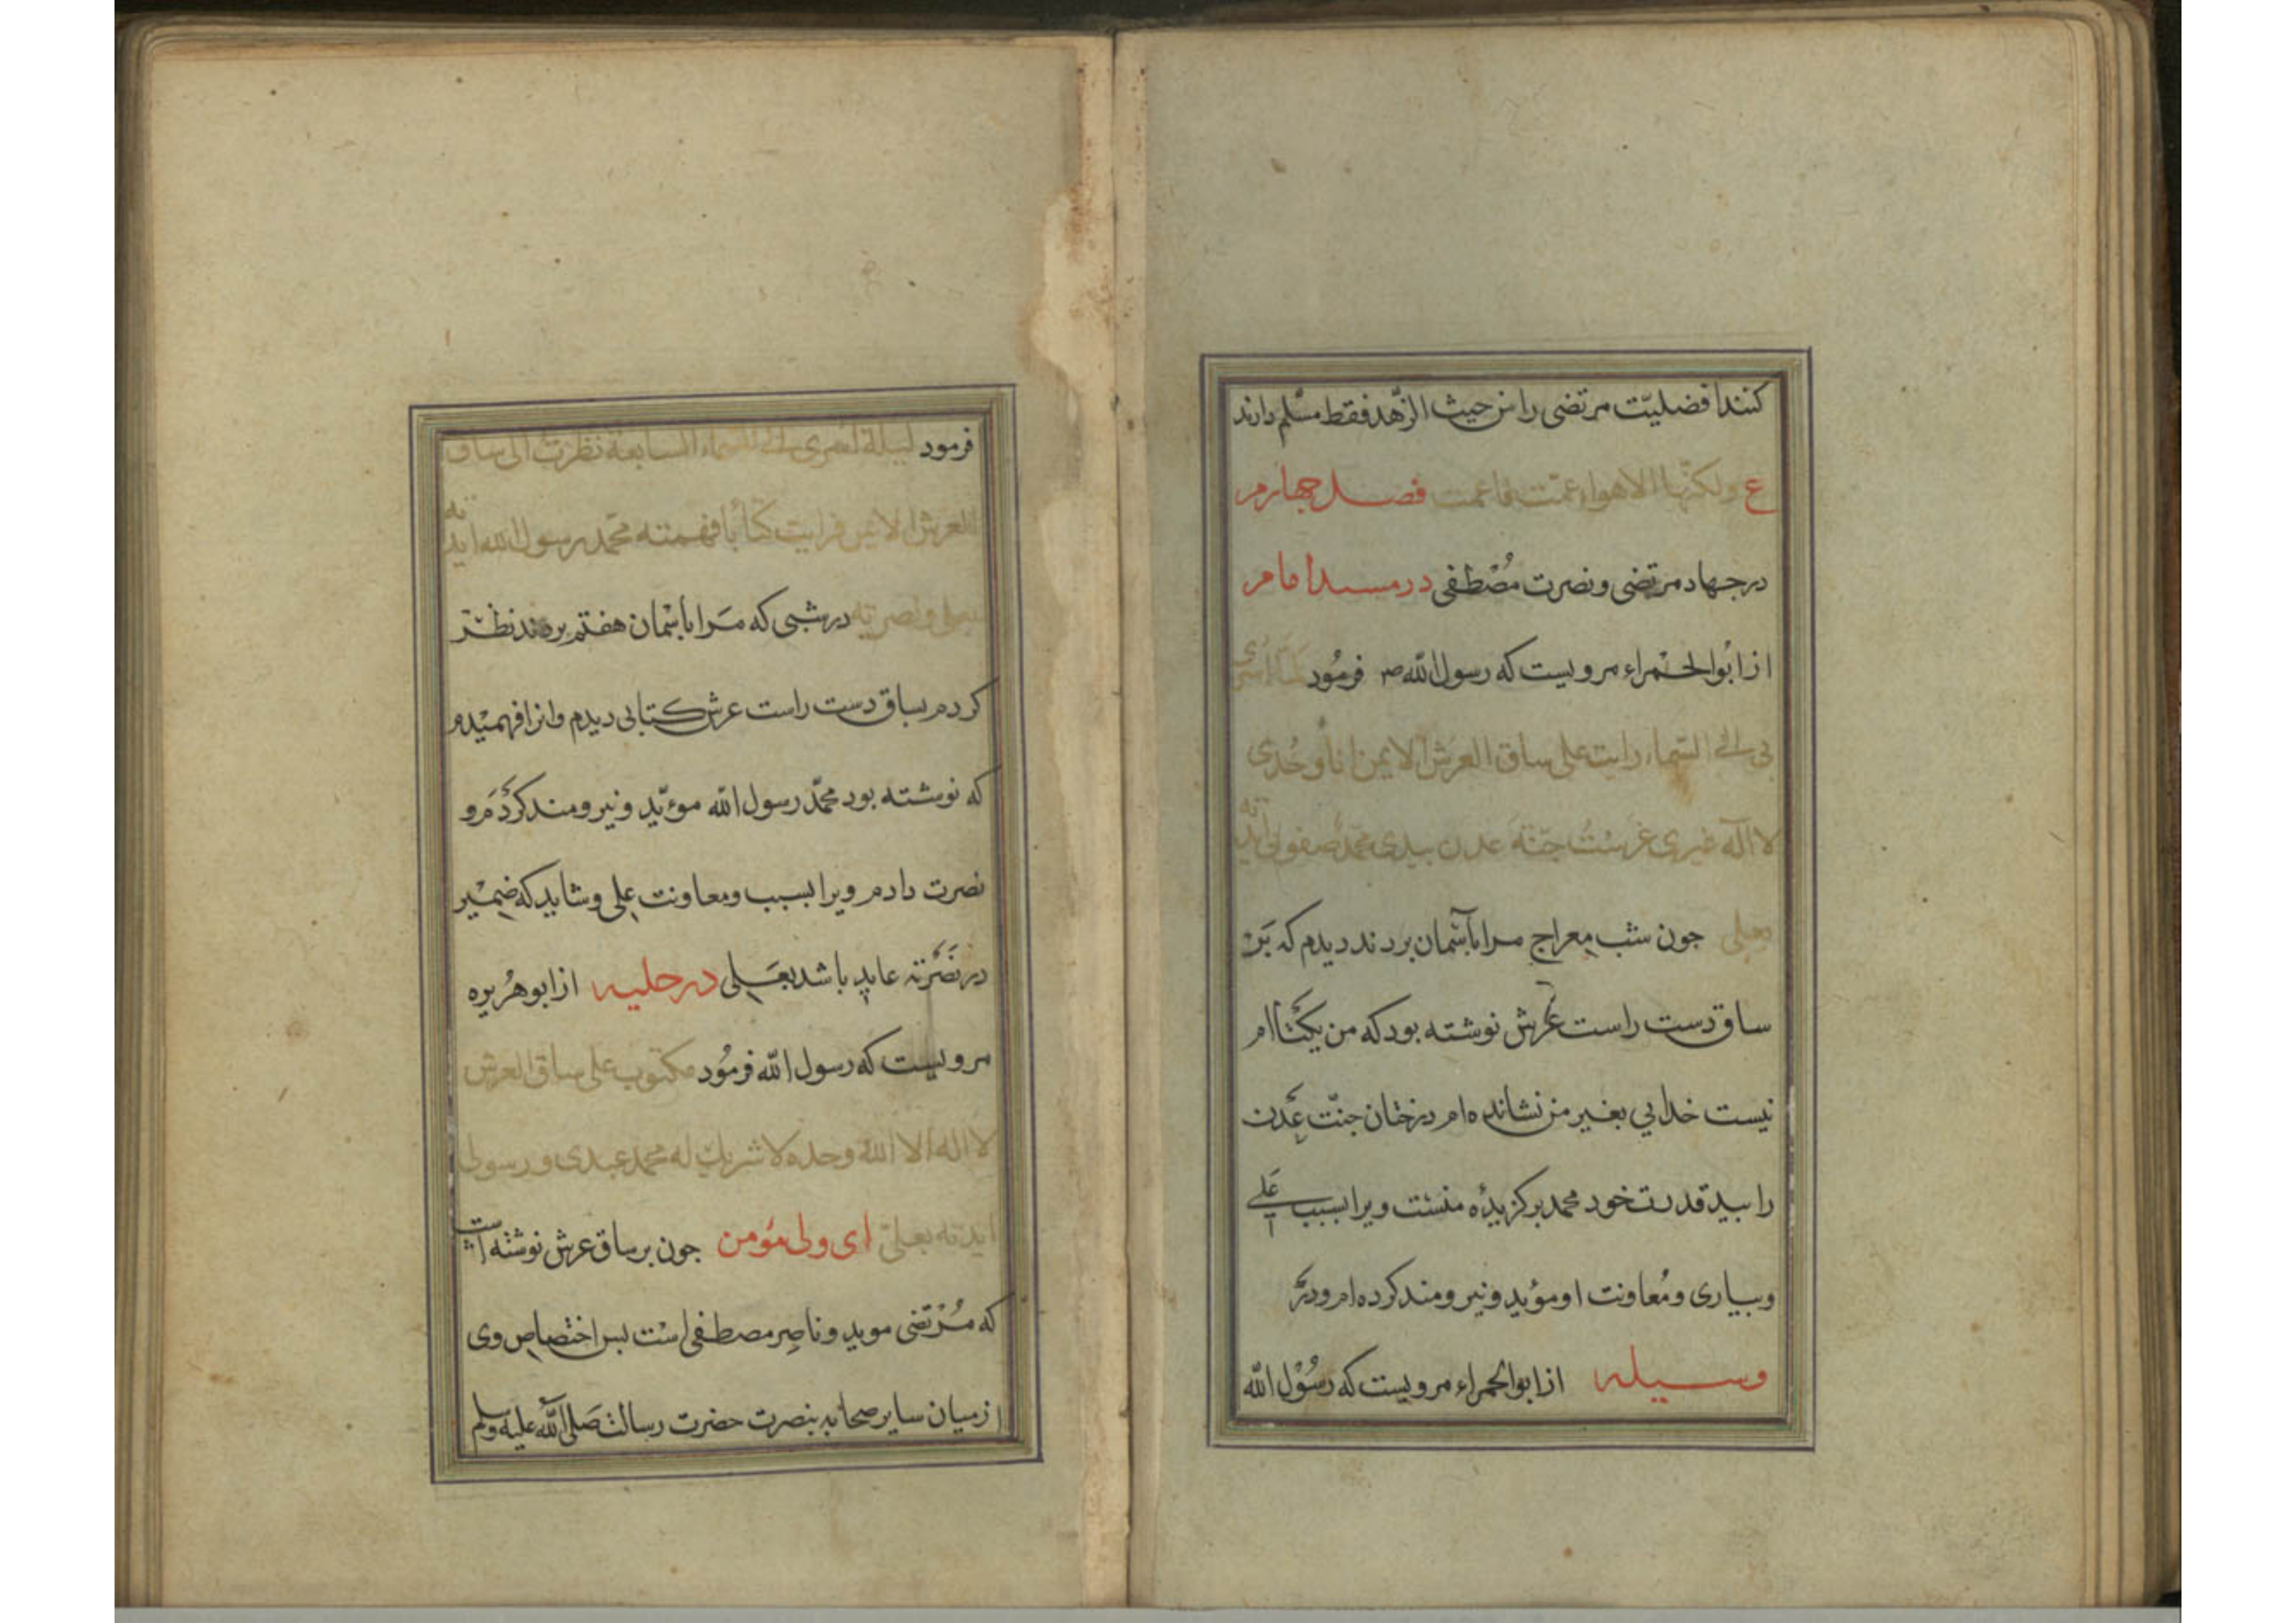 کنند افضلیّت مرتضی را من حیث الزّهد فقط مسّلم دارند
ع ولکنّها الاهواء عمّت فاعمت فصل جهارم
در جهاد مرتضی و نصرت مُصْطفی در مسند امام
از ابُوالحْمراء مرویست که رسول اللّه صـ فرمُود لمّا اسری
بی الی السّماء رایت علی ساق العرش الایمن انا وحُدی
لا اله غیری غرسْتُ جنّة عدن بیدی محمّد صفوتی ایّدته
بعلی جون شب معراج مرا بآسْمان بردند دیدم که بَرْ
ساق دست راست عرش نوشته بود که من یکتا ام
نیست خدایی بغیر من نشانده ام درختان جنّت عدن
را بید قدرت خود محمد برکزیدٔه منست ویرا بسبب علی
و بیاری و مُعاونت او مؤید و نیرومند کرده ام و در
وسیله از ابوالحمراء مرویست که رسُوْل اللّه
فرمود لیلة اسری بی الی السماء السابعة نظرت الی ساق
العرش الایمن فرایت کتابا فهمته محمد رسول الله ایدته
بعلی و نصرته در شبی که مَرا بآسْمان هفتم بردند نظر
کردم بساق دست راست عرش کتابی دیدم و انرا فهمیْدم
که نوشته بود محمّد رسول اللّه موءیّد و نیرومند کردَم و
نصرت دادم ویرا بسبب و معاونت علی و شاید که ضمیْر
در نَصَرته عاید باشد بعَلی در حلیه از ابو هُریره
مرویست که رسول اللّه فرمُود مکتوب علی ساق العرش
لا اله الا الله وحده لا شریك له محمد عبدی و رسولی
ایدته بعلیّ ای ولی مؤمن جون بر ساق عرش نوشته است
که مُرْتضی موید و ناصِر مصطفی است بس اختصاص وی
از میان سایر صحابه بنصرت حضرت رسالت صَلی اللّه علیه وسلم